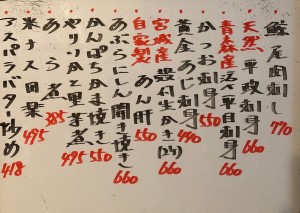 鯨尾肉刺し 770
天然 平政刺身 660
青森産 活〆平目刺身 660
かつお刺身 550
黄金あじ刺身 440
宮城産 殻付生かき(2ケ) 660
自家製 あん肝 550
あぶらにしん開き焼き 660
かんぱちかま焼き 550
やりいかと里芋煮 495
あら煮 385
米ナス田楽 495
アスパラバター炒め 418